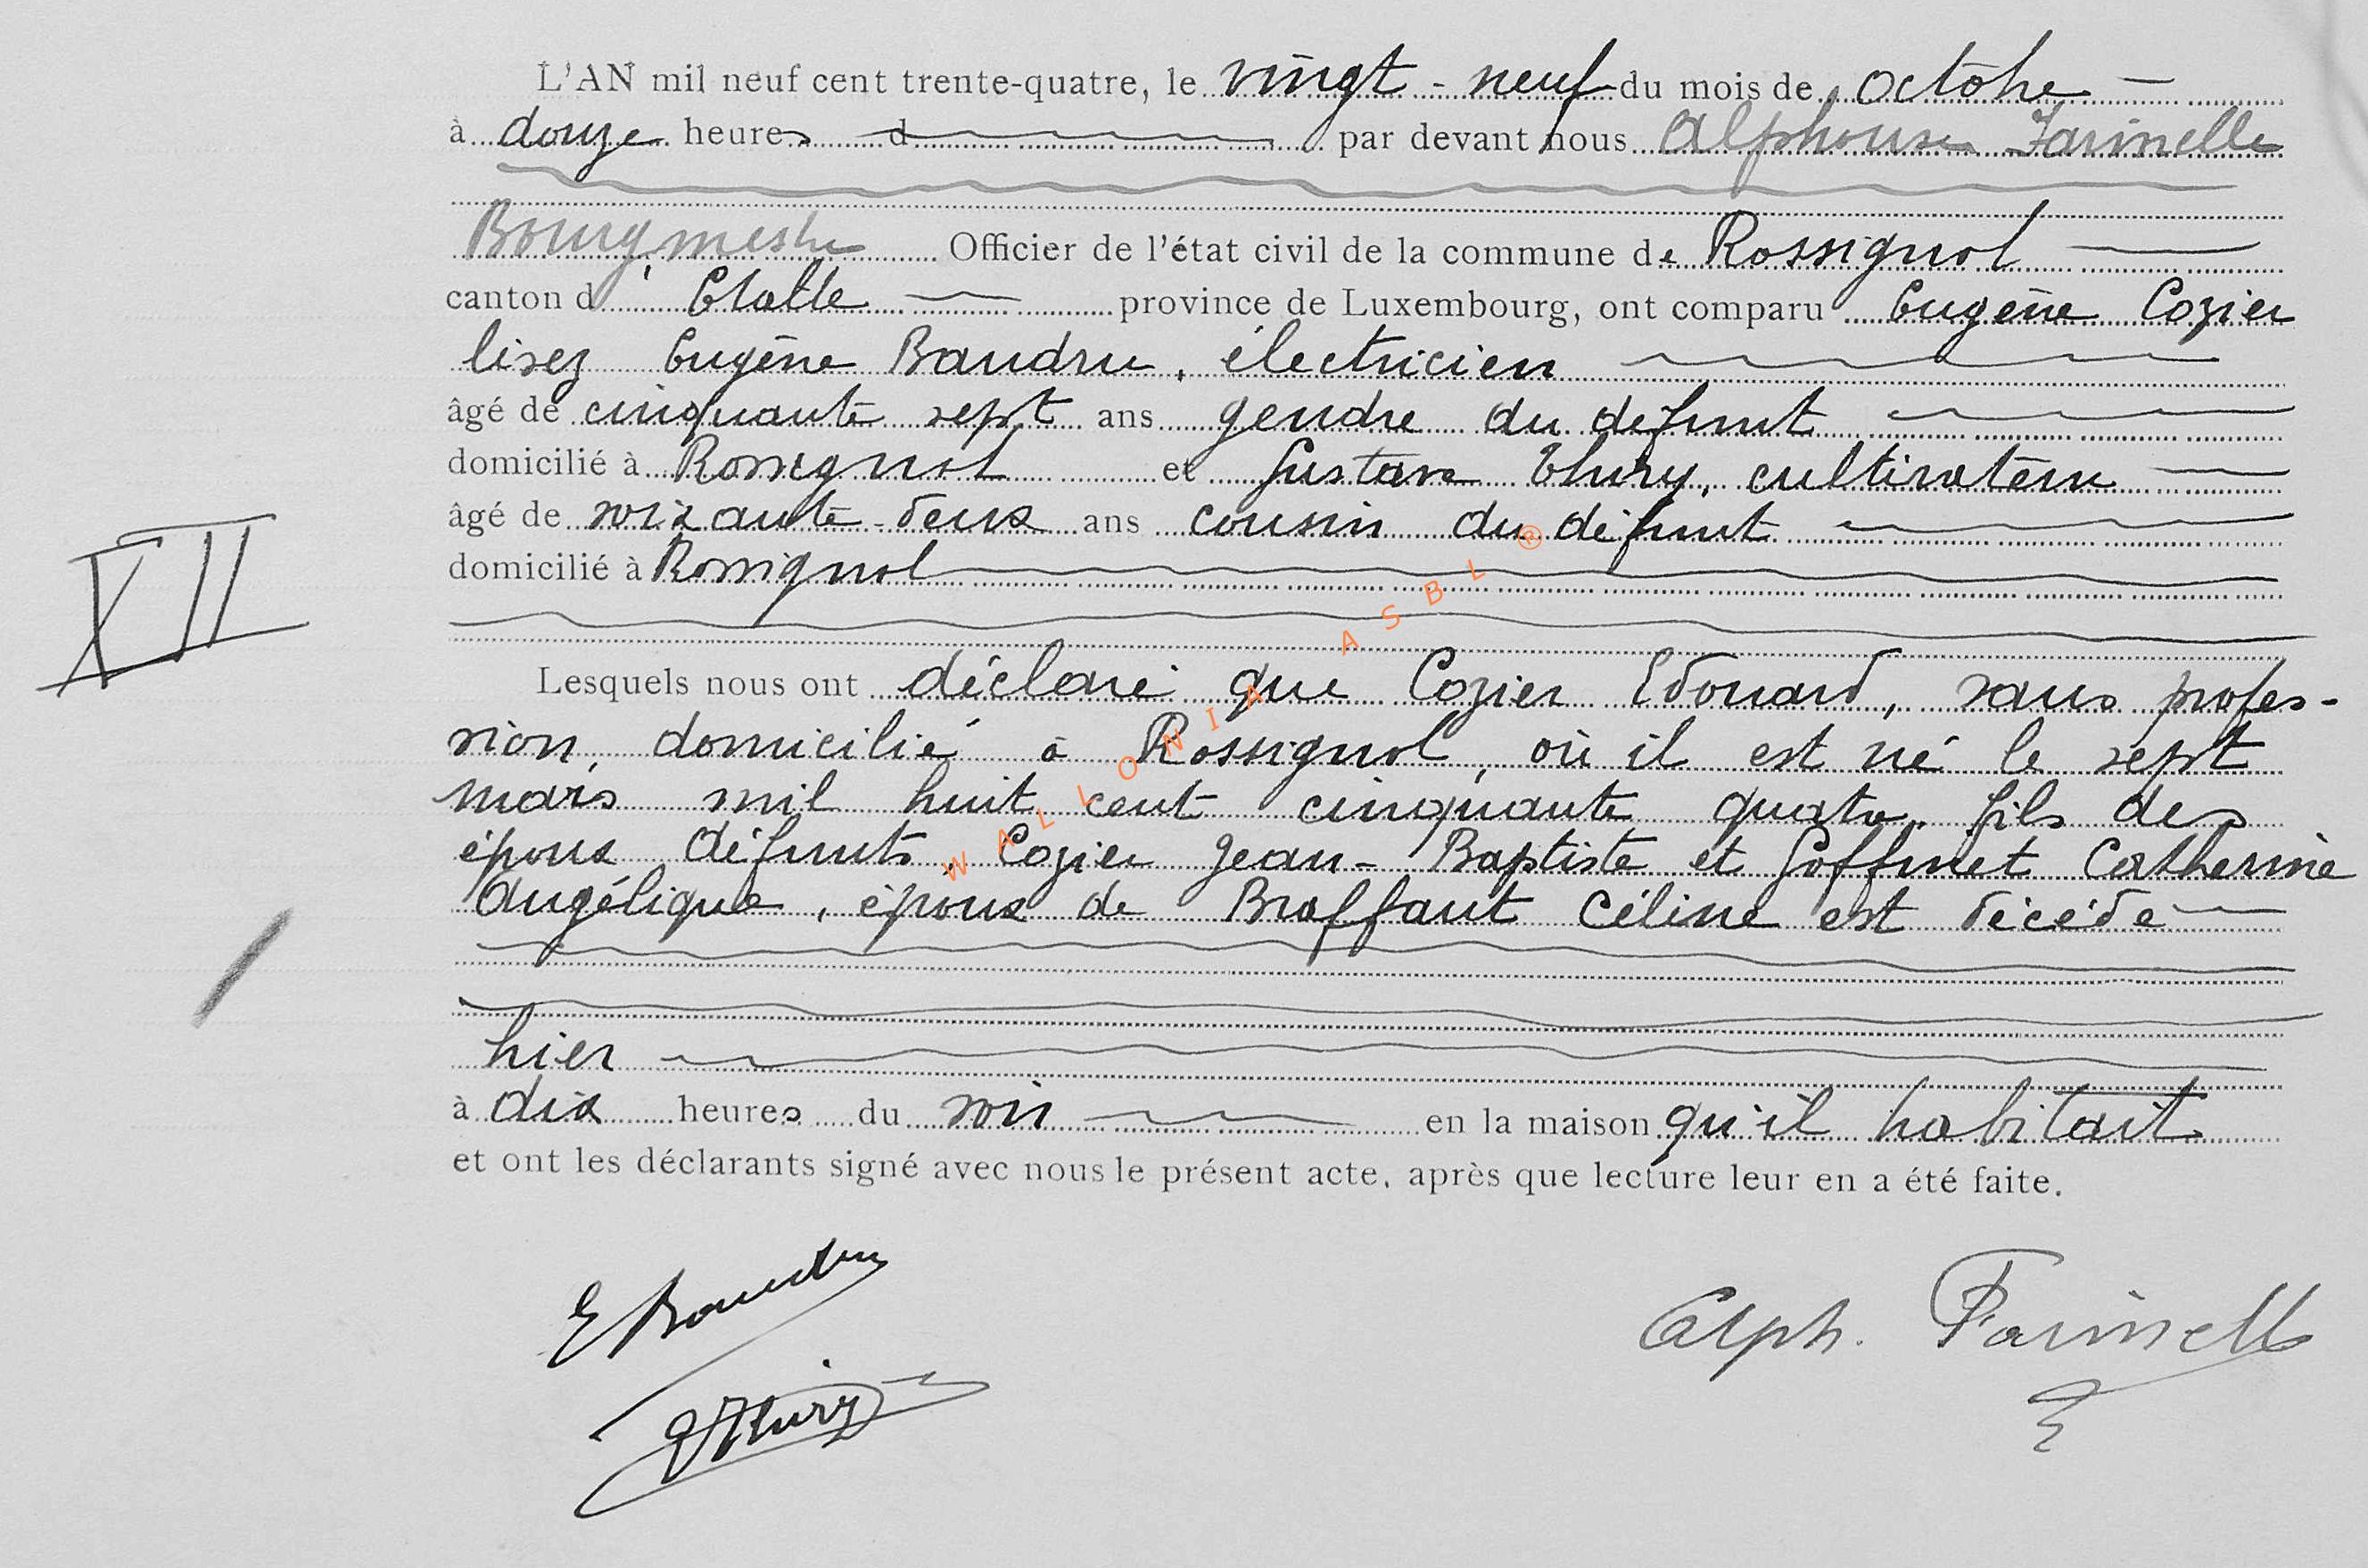 L'AN mil neuf cent trente-quatre, le vingt-neuf du mois de octobre
à douze heures d par devant nous Alphonse Farinelle
Bourgmestre Officier de l'état civil de la commune de Rossignol
canton d'Etalle province de Luxembourg, ont comparu Eugène Cozier
lisez Eugène Baudru, électricien
âgé de cinquante sept ans gendre du défunt
domicilié à Rossignol et Gustave Thiry, cultivateur
âgé de soixante-deux ans cousin du défunt
domicilié à Rossignol
XII
Lesquels nous ont déclaré que Cozier Edouard, sans profes-
sion, domicilié à Rossignol, où il est né le sept
mars mil huit cent cinquante quatre, fils des
époux défunts, Cozier Jean-Baptiste et Goffinet Catherine
Angélique, époux de Braffaut Céline est décédé
hier
à dix heures du soir en la maison qu'il habitait
et ont les déclarants signé avec nous le présent acte, après que lecture leur en a été faite.
E Baudru
G Thiry
Alph. Farinelle
WALLONIA ASBL ®